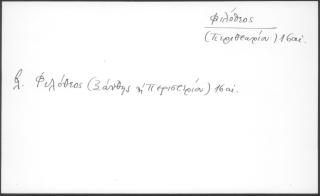 Φιλόθεος
(Περιθεωρίου) 16 αι.
βλ. Φιλόθεος (Ξάνθης ἢ Περιθεωρίου) 16 αι.